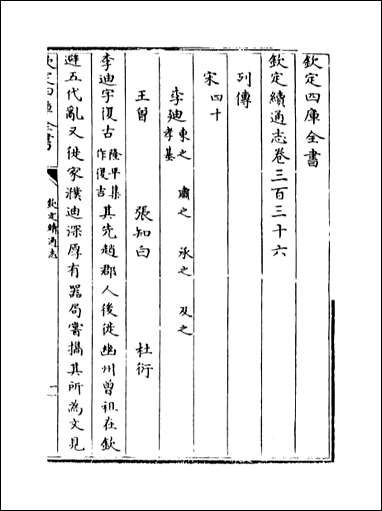 欽定四庫全書
欽定續通志卷三百三十六
列傳
宋四十
李廸東之 肅之 承之 及之 孝基
王曾 張知白 杜衍
李迪字復古隆平集作復吉其先趙郡人後徙幽州曾祖在欽
避五代亂又徙家濮迪深厚有器局嘗攜其所為文見
欽定四庫全書
欽定續通志
一